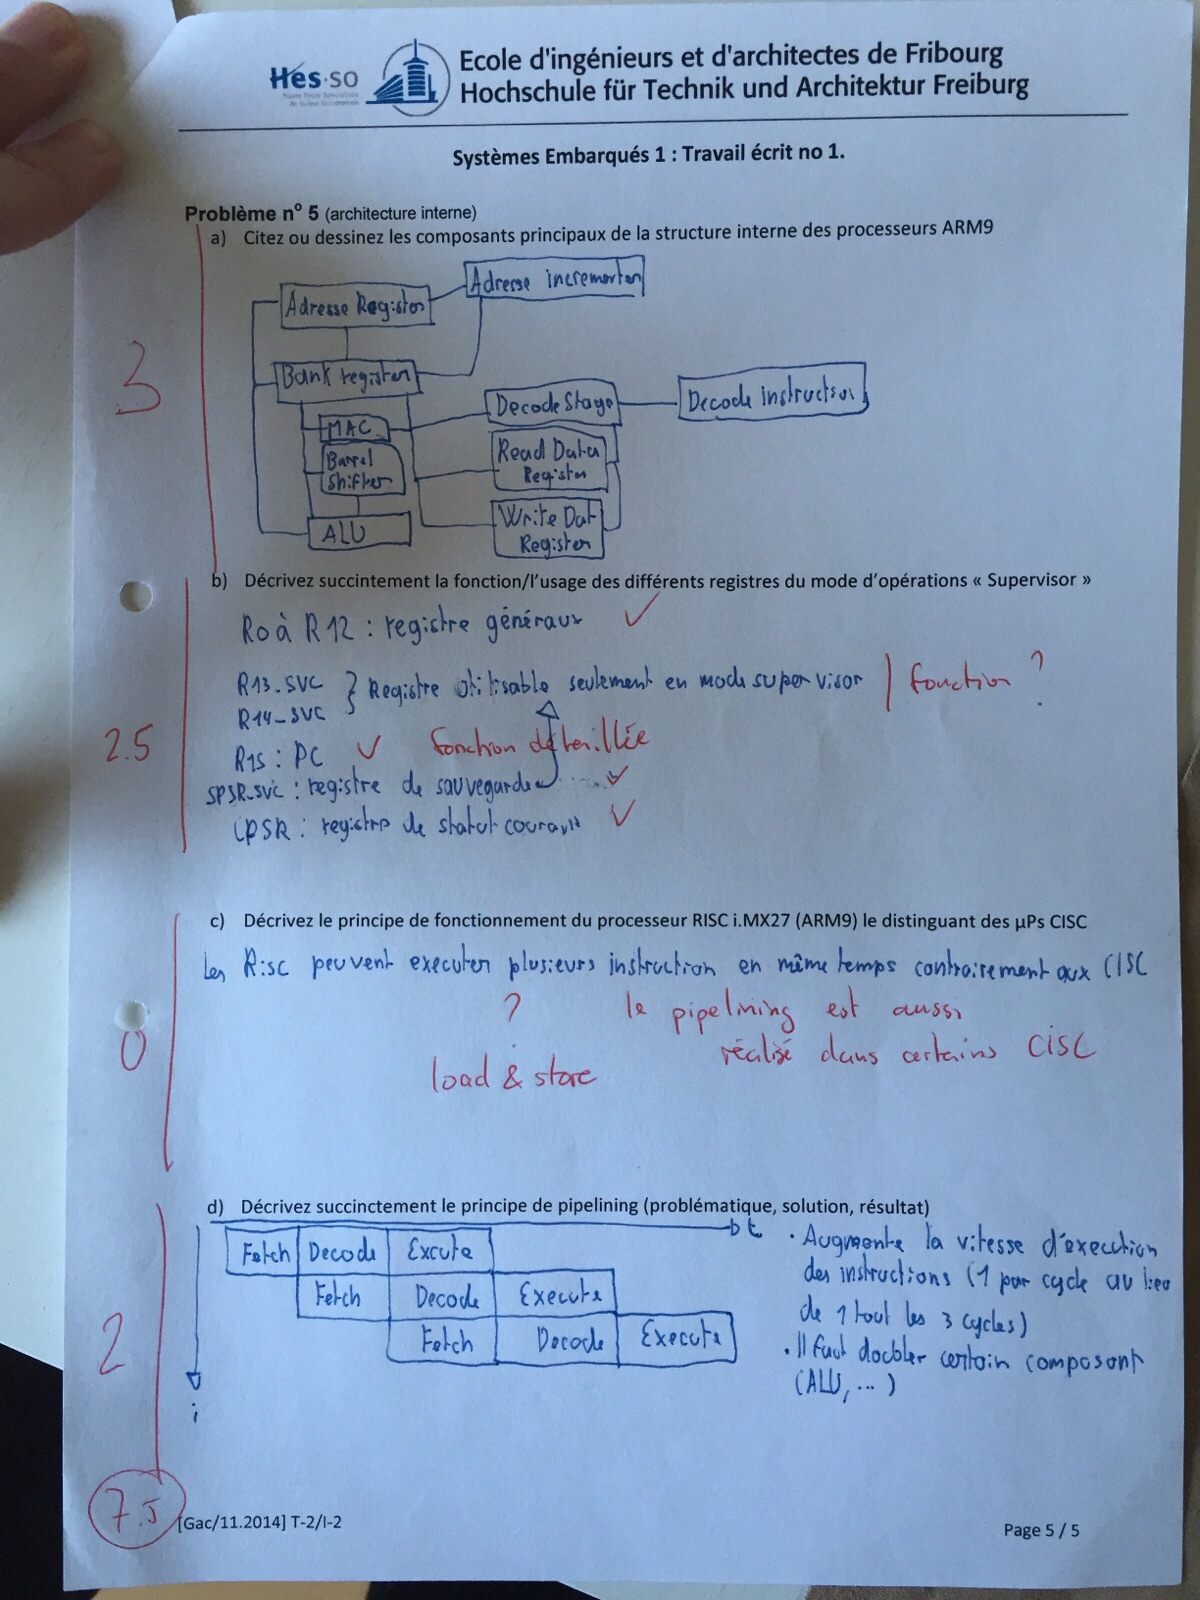 Hes·so
Haute Ecole Spécialisée
de Suisse Occidentale
Ecole d'ingénieurs et d'architectes de Fribourg
Hochschule für Technik und Architektur Freiburg
Systèmes Embarqués 1 : Travail écrit no 1.
Problème n° 5 (architecture interne)
a) Citez ou dessinez les composants principaux de la structure interne des processeurs ARM9
Adresse incrementer
Adresse Register
3
Bank register
Decode Stage
Decode instruction
MAC
Barrel
Shifter
Read Data
Register
ALU
Write Dat
Register
b) Décrivez succintement la fonction/l'usage des différents registres du mode d'opérations « Supervisor »
R0 à R12 : registre généraux ✓
R13_SVC
R14_SVC
} Registre utilisable seulement en mode supervisor | fonction ?
2.5
R15 : PC ✓ fonction détaillée
SPSR_svc : registre de sauvegarde ✓
CPSR : registre de statut courant ✓
c) Décrivez le principe de fonctionnement du processeur RISC i.MX27 (ARM9) le distinguant des µPs CISC
Les Risc peuvent executer plusieurs instruction en même temps contrairement aux CISC
? le pipelining est aussi
réalisé dans certains CISC
0
load & store
d) Décrivez succinctement le principe de pipelining (problématique, solution, résultat)
t
Fetch Decode Excute
Fetch Decode Execute
Fetch Decode Execute
i
· Augmente la vitesse d'execution
des instructions (1 par cycle au lieu
de 1 tout les 3 cycles)
· Il faut doubler certain composant
(ALU, ...)
2
7.5
[Gac/11.2014] T-2/I-2
Page 5 / 5